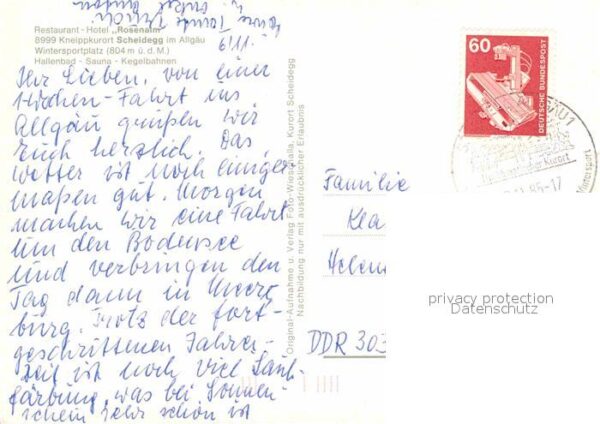 Restaurant - Hotel „Rosenalm"
8999 Kneippkurort Scheidegg im Allgäu
Wintersportplatz (804 m ü. d. M.)
Hallenbad - Sauna - Kegelbahnen
6/11.
Ihr Lieben, von einer
Wochen-Fahrt ins
Allgäu grüßen wir
Euch herzlich. Das
Wetter ist noch einiger
maßen gut. Morgen
machen wir eine Fahrt
um den Bodensee
und verbringen den
Tag dann in Meers
burg. Trotz der fort-
geschrittenen Jahres-
zeit ist noch viel Laub-
färbung, was bei Sonnen-
schein sehr schön ist
Eure Tante
u. Onkel
Original-Aufnahme u. Verlag Foto-Wieschalla, Kurort Scheidegg
Nachbildung nur mit ausdrücklicher Erlaubnis
60
DEUTSCHE BUNDESPOST
Kurort
85-17
Wintersport
Familie
Kla
Helen
DDR 303
privacy protection
Datenschutz